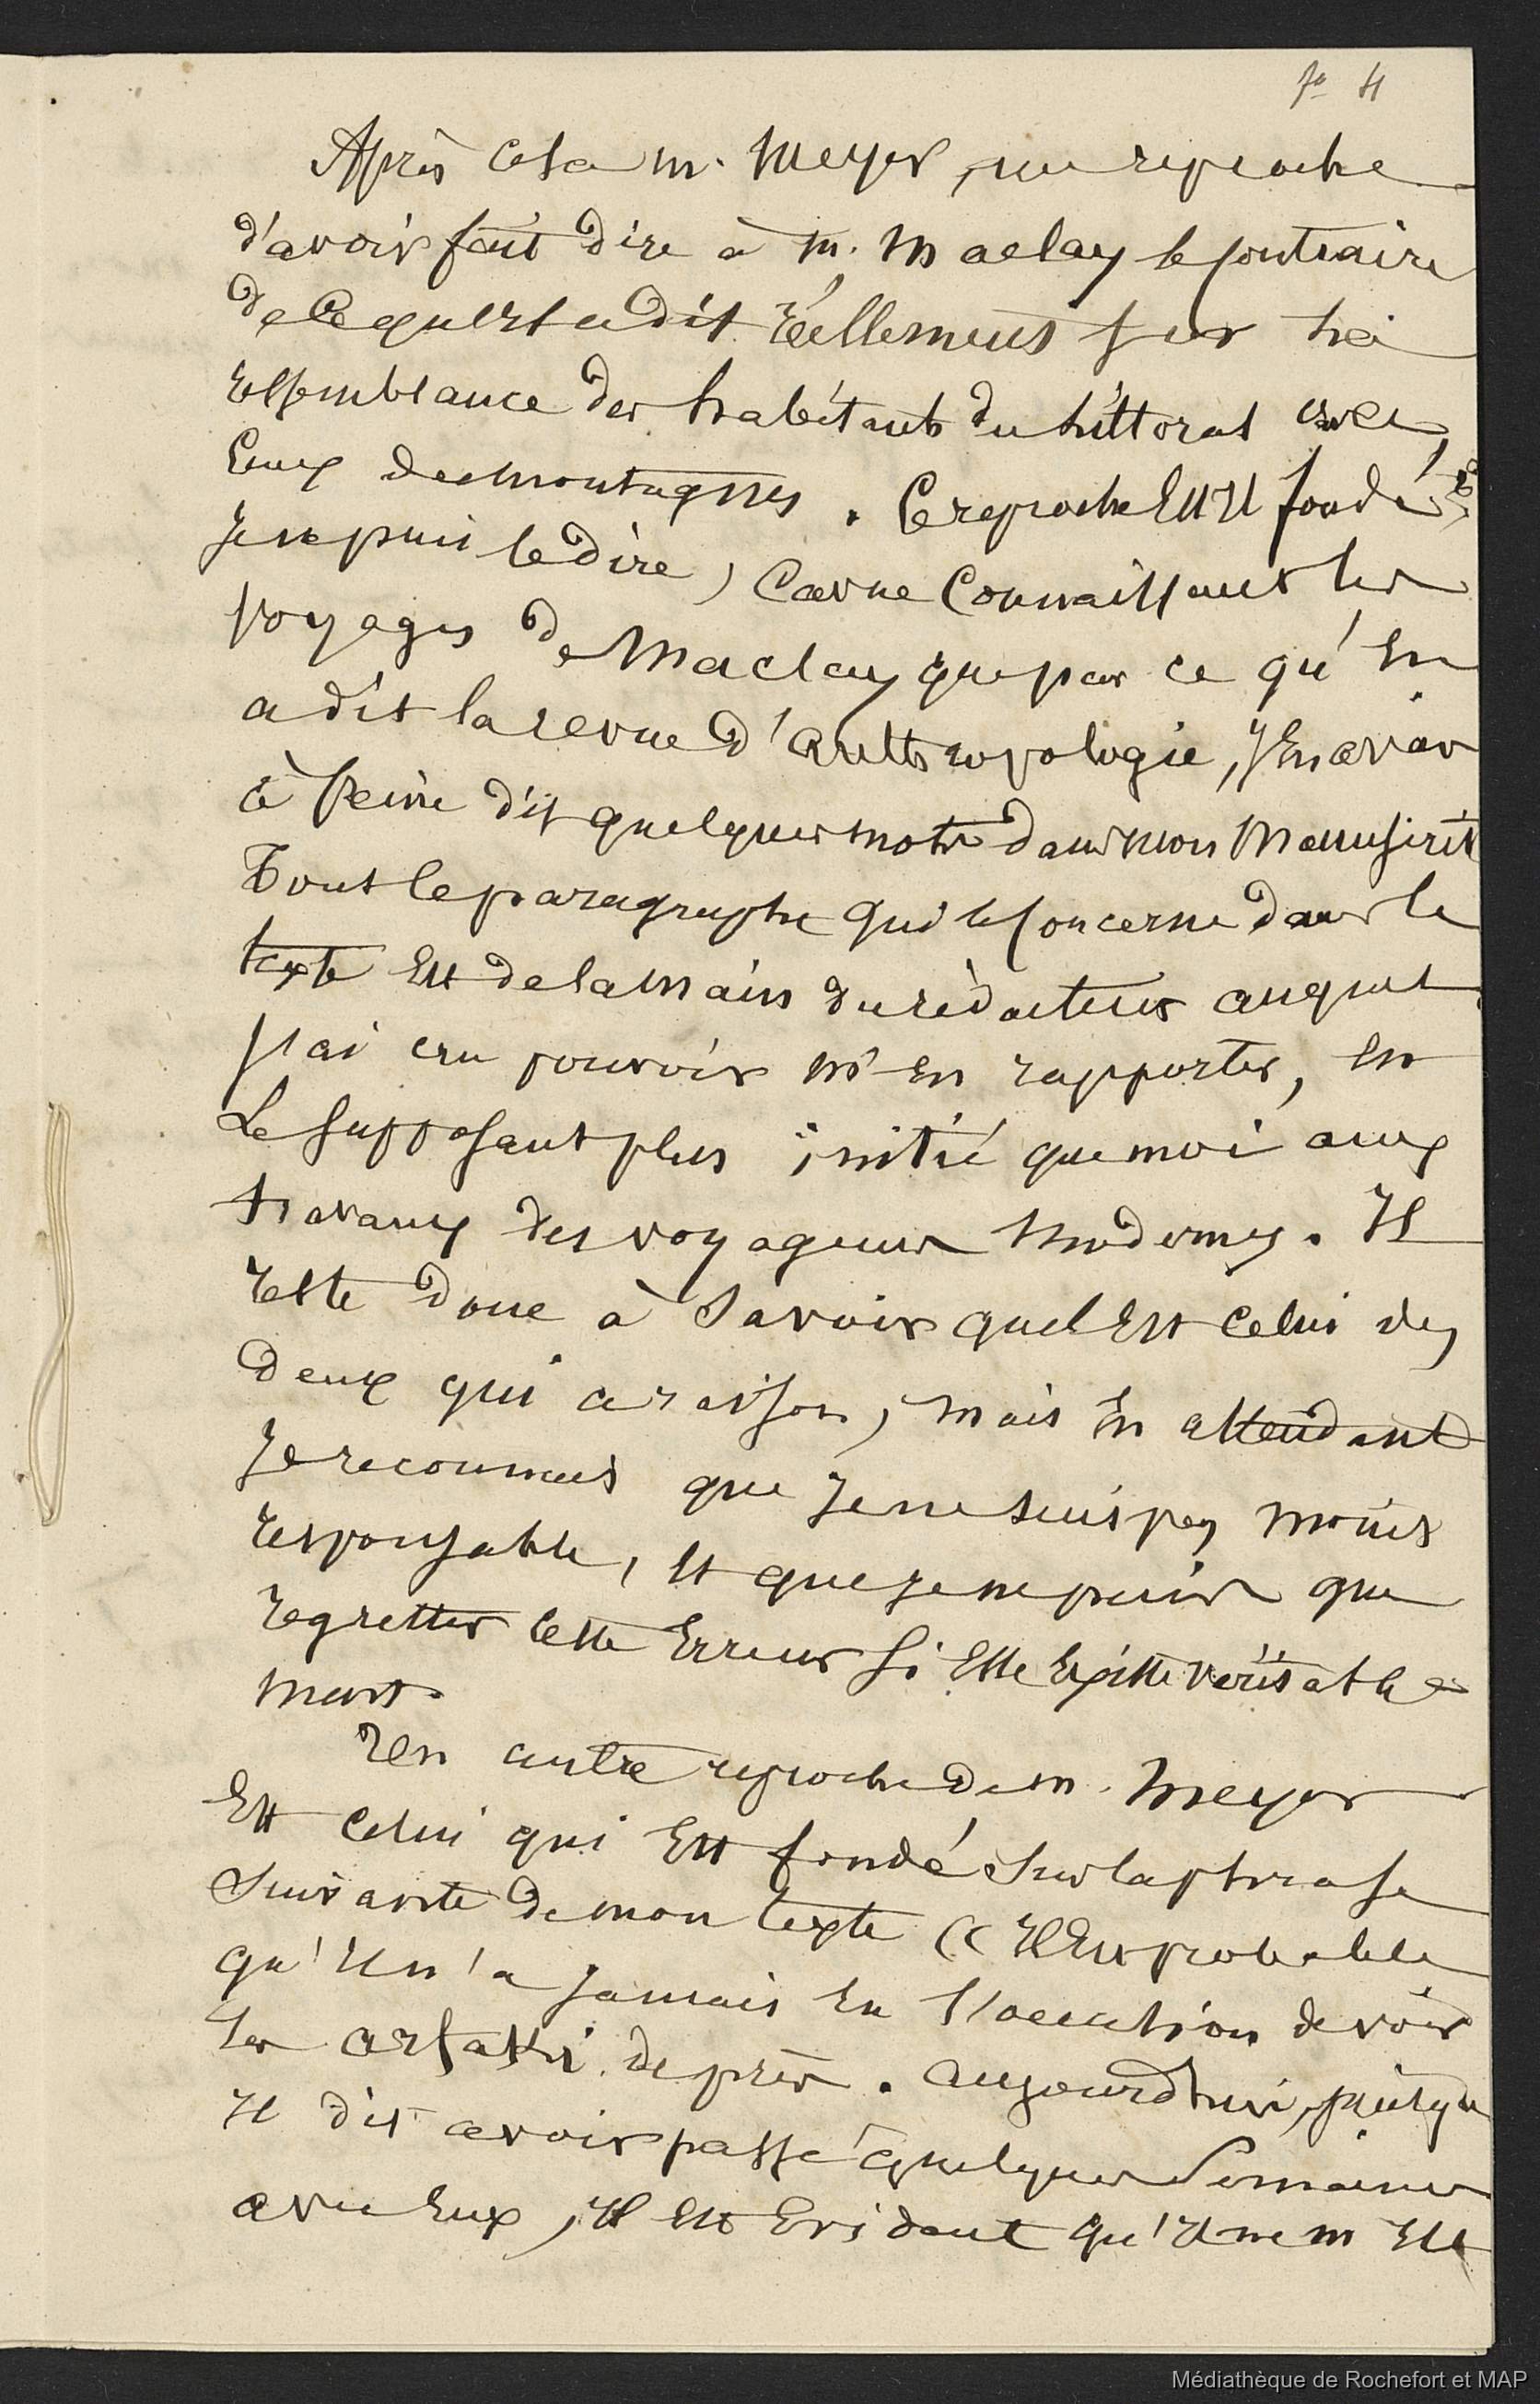 fo 4
Après cela m. Meyer, me reproche
d'avoir fait dire à m. Maclay le contraire
de ce qu'il a dit réellement sur la
ressemblance des habitants du littoral avec
ceux des montagnes. Ce reproche est il fondé
je ne puis le dire, car ne connaissant les
voyages de Maclay que par ce qu'en
a dit la revue d'anthropologie, j'en avais
à peine dit quelques mots dans mon manuscrit
Tout le paragraphe qui le concerne dans le
texte est de la main du rédacteur auquel
j'ai cru pouvoir m'en rapporter, en
le supposant plus initié que moi aux
travaux des voyageurs modernes. Il
reste donc à savoir quel est celui des
deux qui a raison, mais en attendant
je reconnais que je ne suis pas moins
responsable, et que je ne puis que
regretter cette erreur si elle existe véritable
ment.
Un autre reproche de m. Meyer
est celui qui est fondé sur la phrase
suivante de mon texte « Il est probable
qu'il n'a jamais eu l'occasion de voir
les arfakis de près. aujourd'hui, puisqu
il dit avoir passé quelques semaines
avec eux, il est évident qu'il ne m est
Médiathèque de Rochefort et MAP